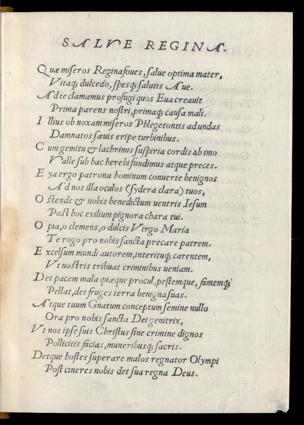 SALVE REGINA.
Quæ miseros Regina foues, salue optima mater,
Vitaq; dulcedo, spesq; salutis Aue.
Ad te clamamus profugi quos Eua creauit
Prima parens nostri, primaq; causa mali.
Illius ob noxam miseros Phlegetontis ad undas
Damnatos sæuis eripe turbinibus.
Cum gemitu & lachrimis suspiria cordis ab imo
Valle sub hac hereb fundimus atque preces.
Eya ergo patrona hominum conuerte benignos
Ad nos illa oculos (sydera clara) tuos,
Ostende & nobis benedictum uentris Iesum
Post hoc exilium pignora chara tui.
O pia, o clemens, o dulcis Virgo Maria
Te rogo pro nobis sancta precare patrem.
Excelsum mundi autorem, interituq; carentem,
Vt nostris tribuat criminibus ueniam.
Det pacem mala quæque procul, pestemque, famemq;
Pellat, det fruges terra benigna suas.
Atque tuum Gnatum conceptum semine nullo
Ora pro nobis sancta Dei genitrix,
Vt nos ipse suis Christus sine crimine dignos
Pollicitis faciat, muneribusq; sacris.
Detque hostes superare malos regnator Olympi
Post cineres nobis det sua regna Deus.